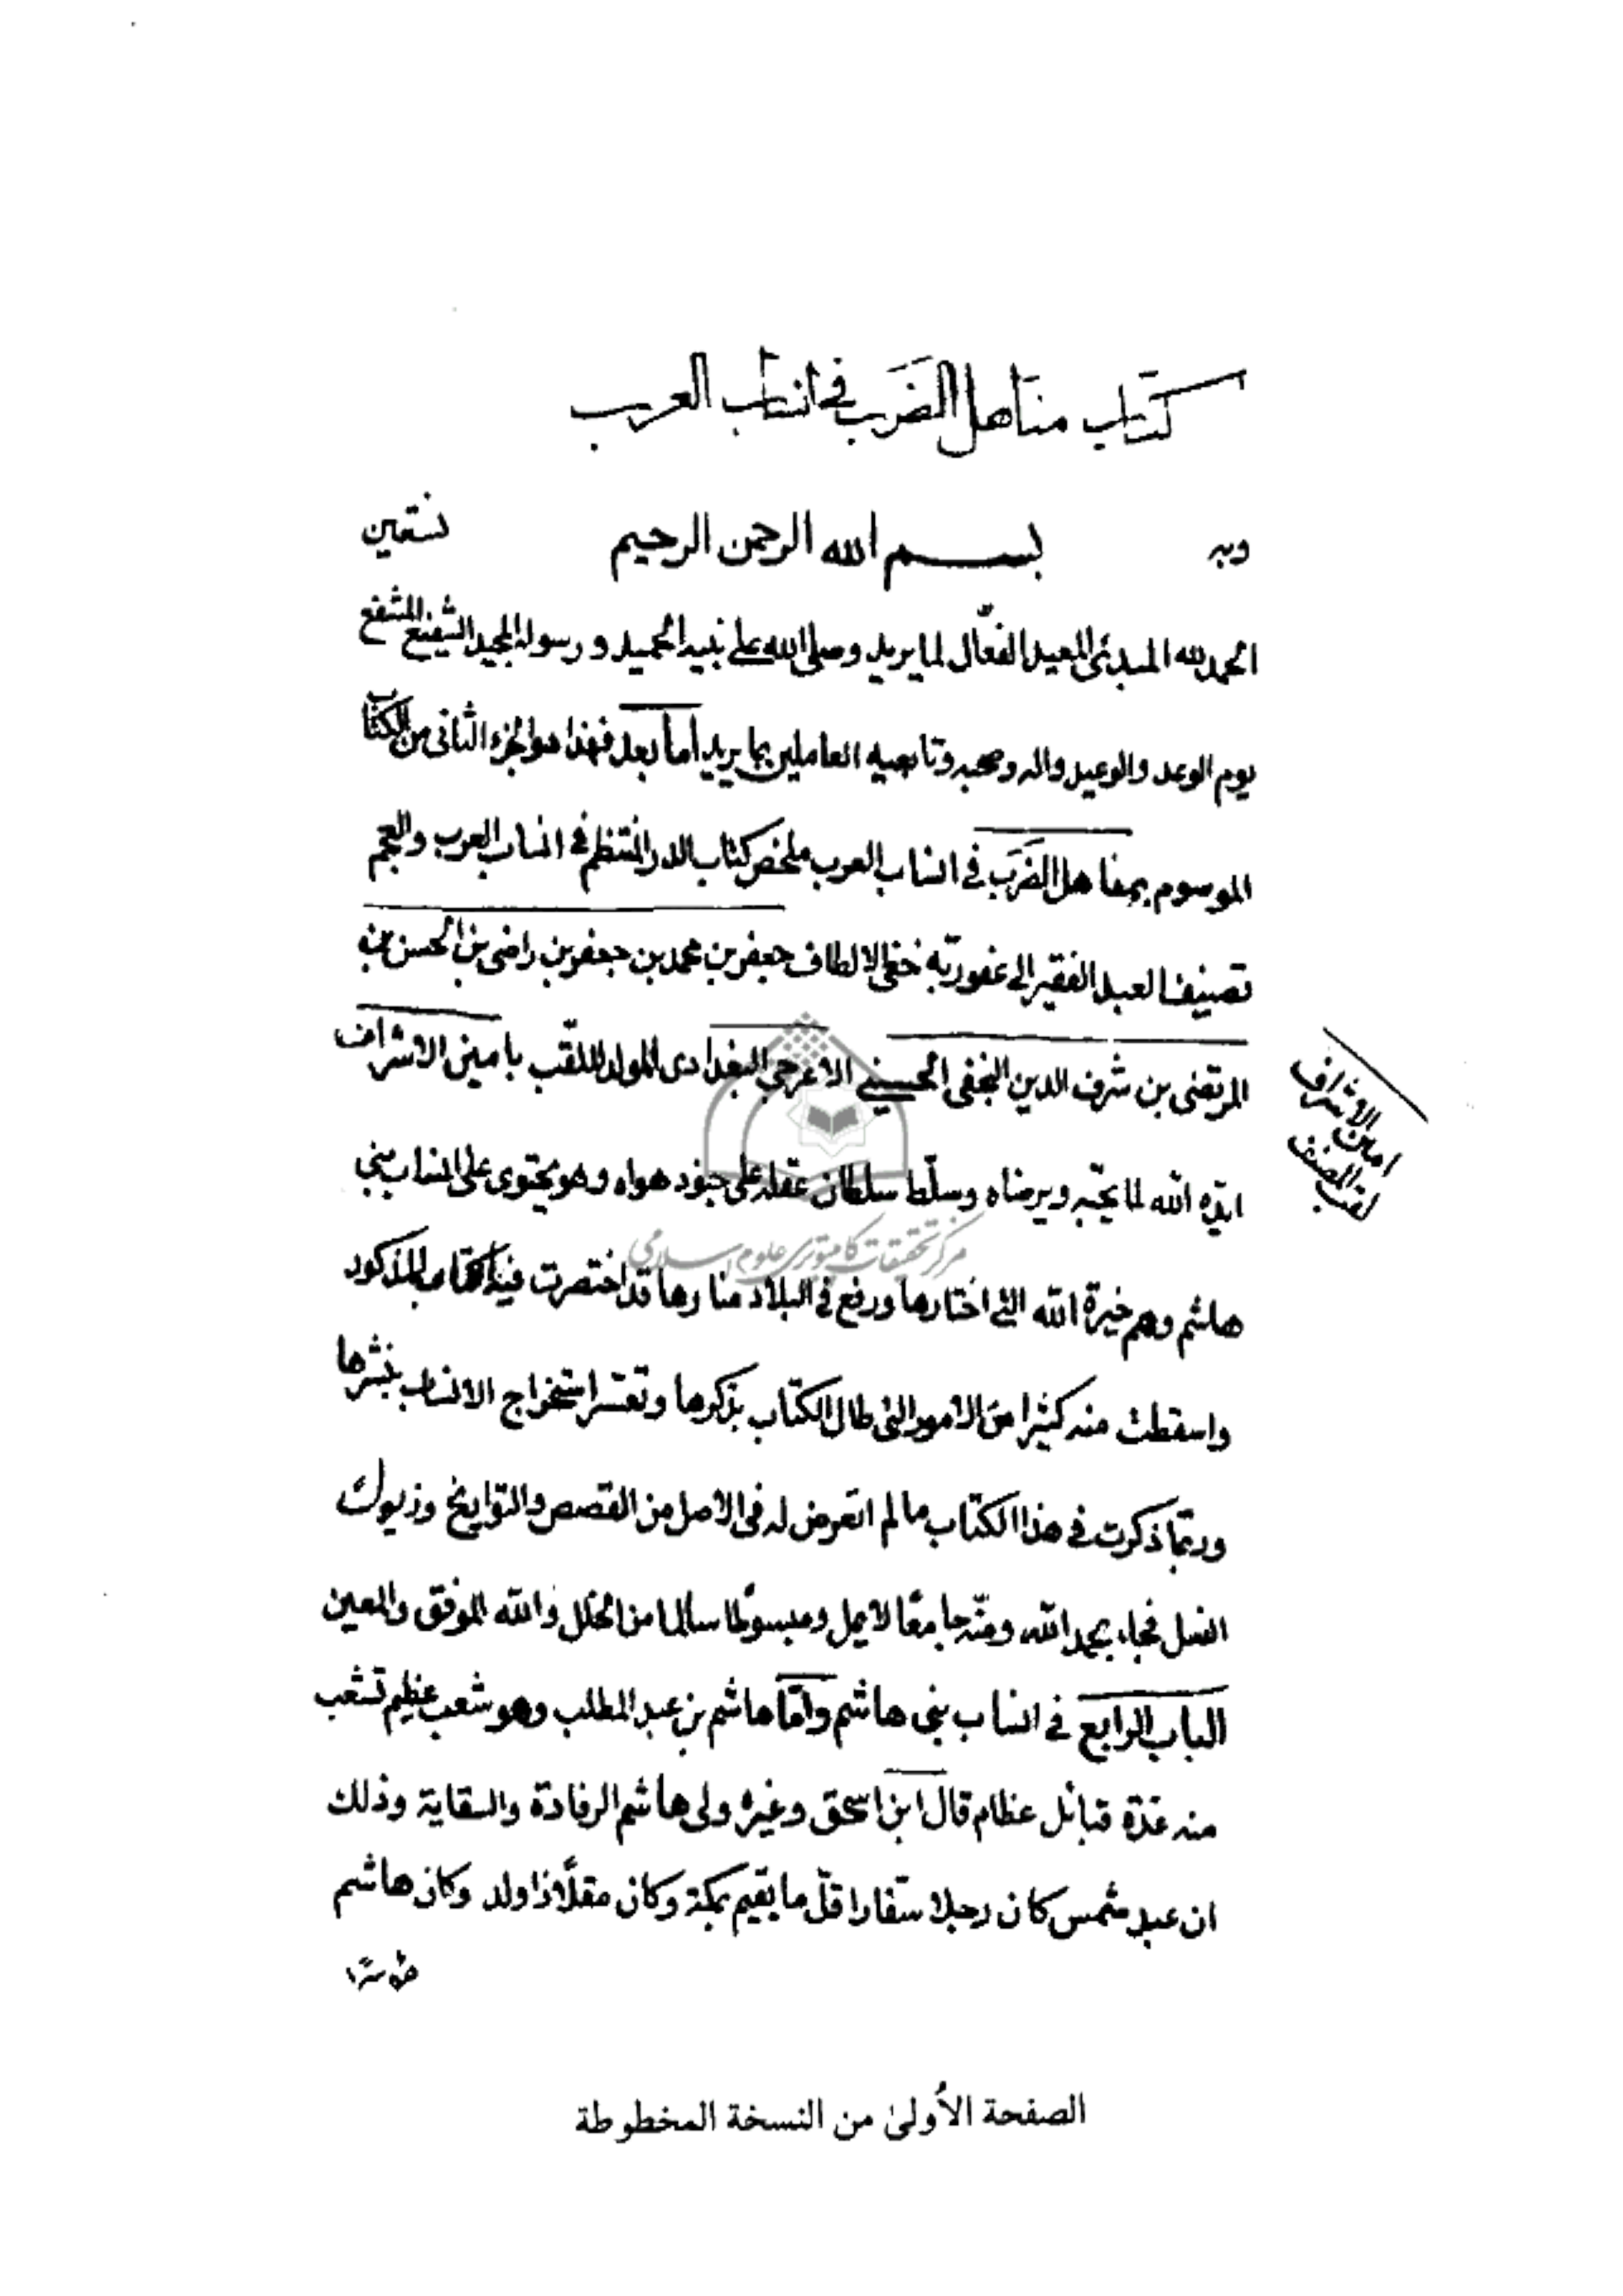 كتاب مناهل الضَرَب في انساب العرب
وبه بسم الله الرحمن الرحيم نستعين
الحمد لله المبدئ المعيد الفعّال لما يريد وصلى الله على نبيه الحميد ورسوله المجيد الشفيع المشفع
يوم الوعد والوعيد واله وصحبه وتابعيه العاملين بما يريد أما بعد فهذا هو الجزء الثانى من الكتاب
الموسوم بمناهل الضَرَب في انساب العرب ملخص كتاب الدر المنتظم في انساب العرب والعجم
تصنيف العبد الفقير الى عفو ربّه خفى الالطاف جعفر بن محمد بن جعفر بن راضى بن الحسن بن
المرتضى بن شرف الدين النجفى الحسيني الاعرجي البغدادى المولد الملقّب بامين الاشراف
امين الاشراف
لقب المصنف
ايّده الله لما يحبّه ويرضاه وسلّط سلطان عقله على جنود هواه وهو يحتوى على انساب بنى
هاشم وهم خيرة الله التي اختارها ورفع في البلاد منارها قد اختصرت فيه الكتاب المذكور
واسقطت منه كثيرا من الامور التى طال الكتاب بذكرها وتعسّر استخراج الانساب بنشرها
وربّما ذكرت في هذا الكتاب ما لم اتعرض له فى الاصل من القصص والتواريخ وذيول
النسل فجاء بحمد الله ومنّه جامعًا لا يمل ومبسوطا سالما من الخلل والله الموفق والمعين
الباب الرابع في انساب بنى هاشم وامّا هاشم بن عبد المطلب وهو شعب عظيم تشعب
منه عدّة قبائل عظام قال ابن اسحق وغيره ولى هاشم الرفادة والسقاية وذلك
ان عبد شمس كان رجلا سفّارا قلّ ما يقيم بمكة وكان مقلًّا ذا ولد وكان هاشم
موسرًا
مركز تحقيقات كامپيوترى علوم اسلامى
الصفحة الأولىٰ من النسخة المخطوطة